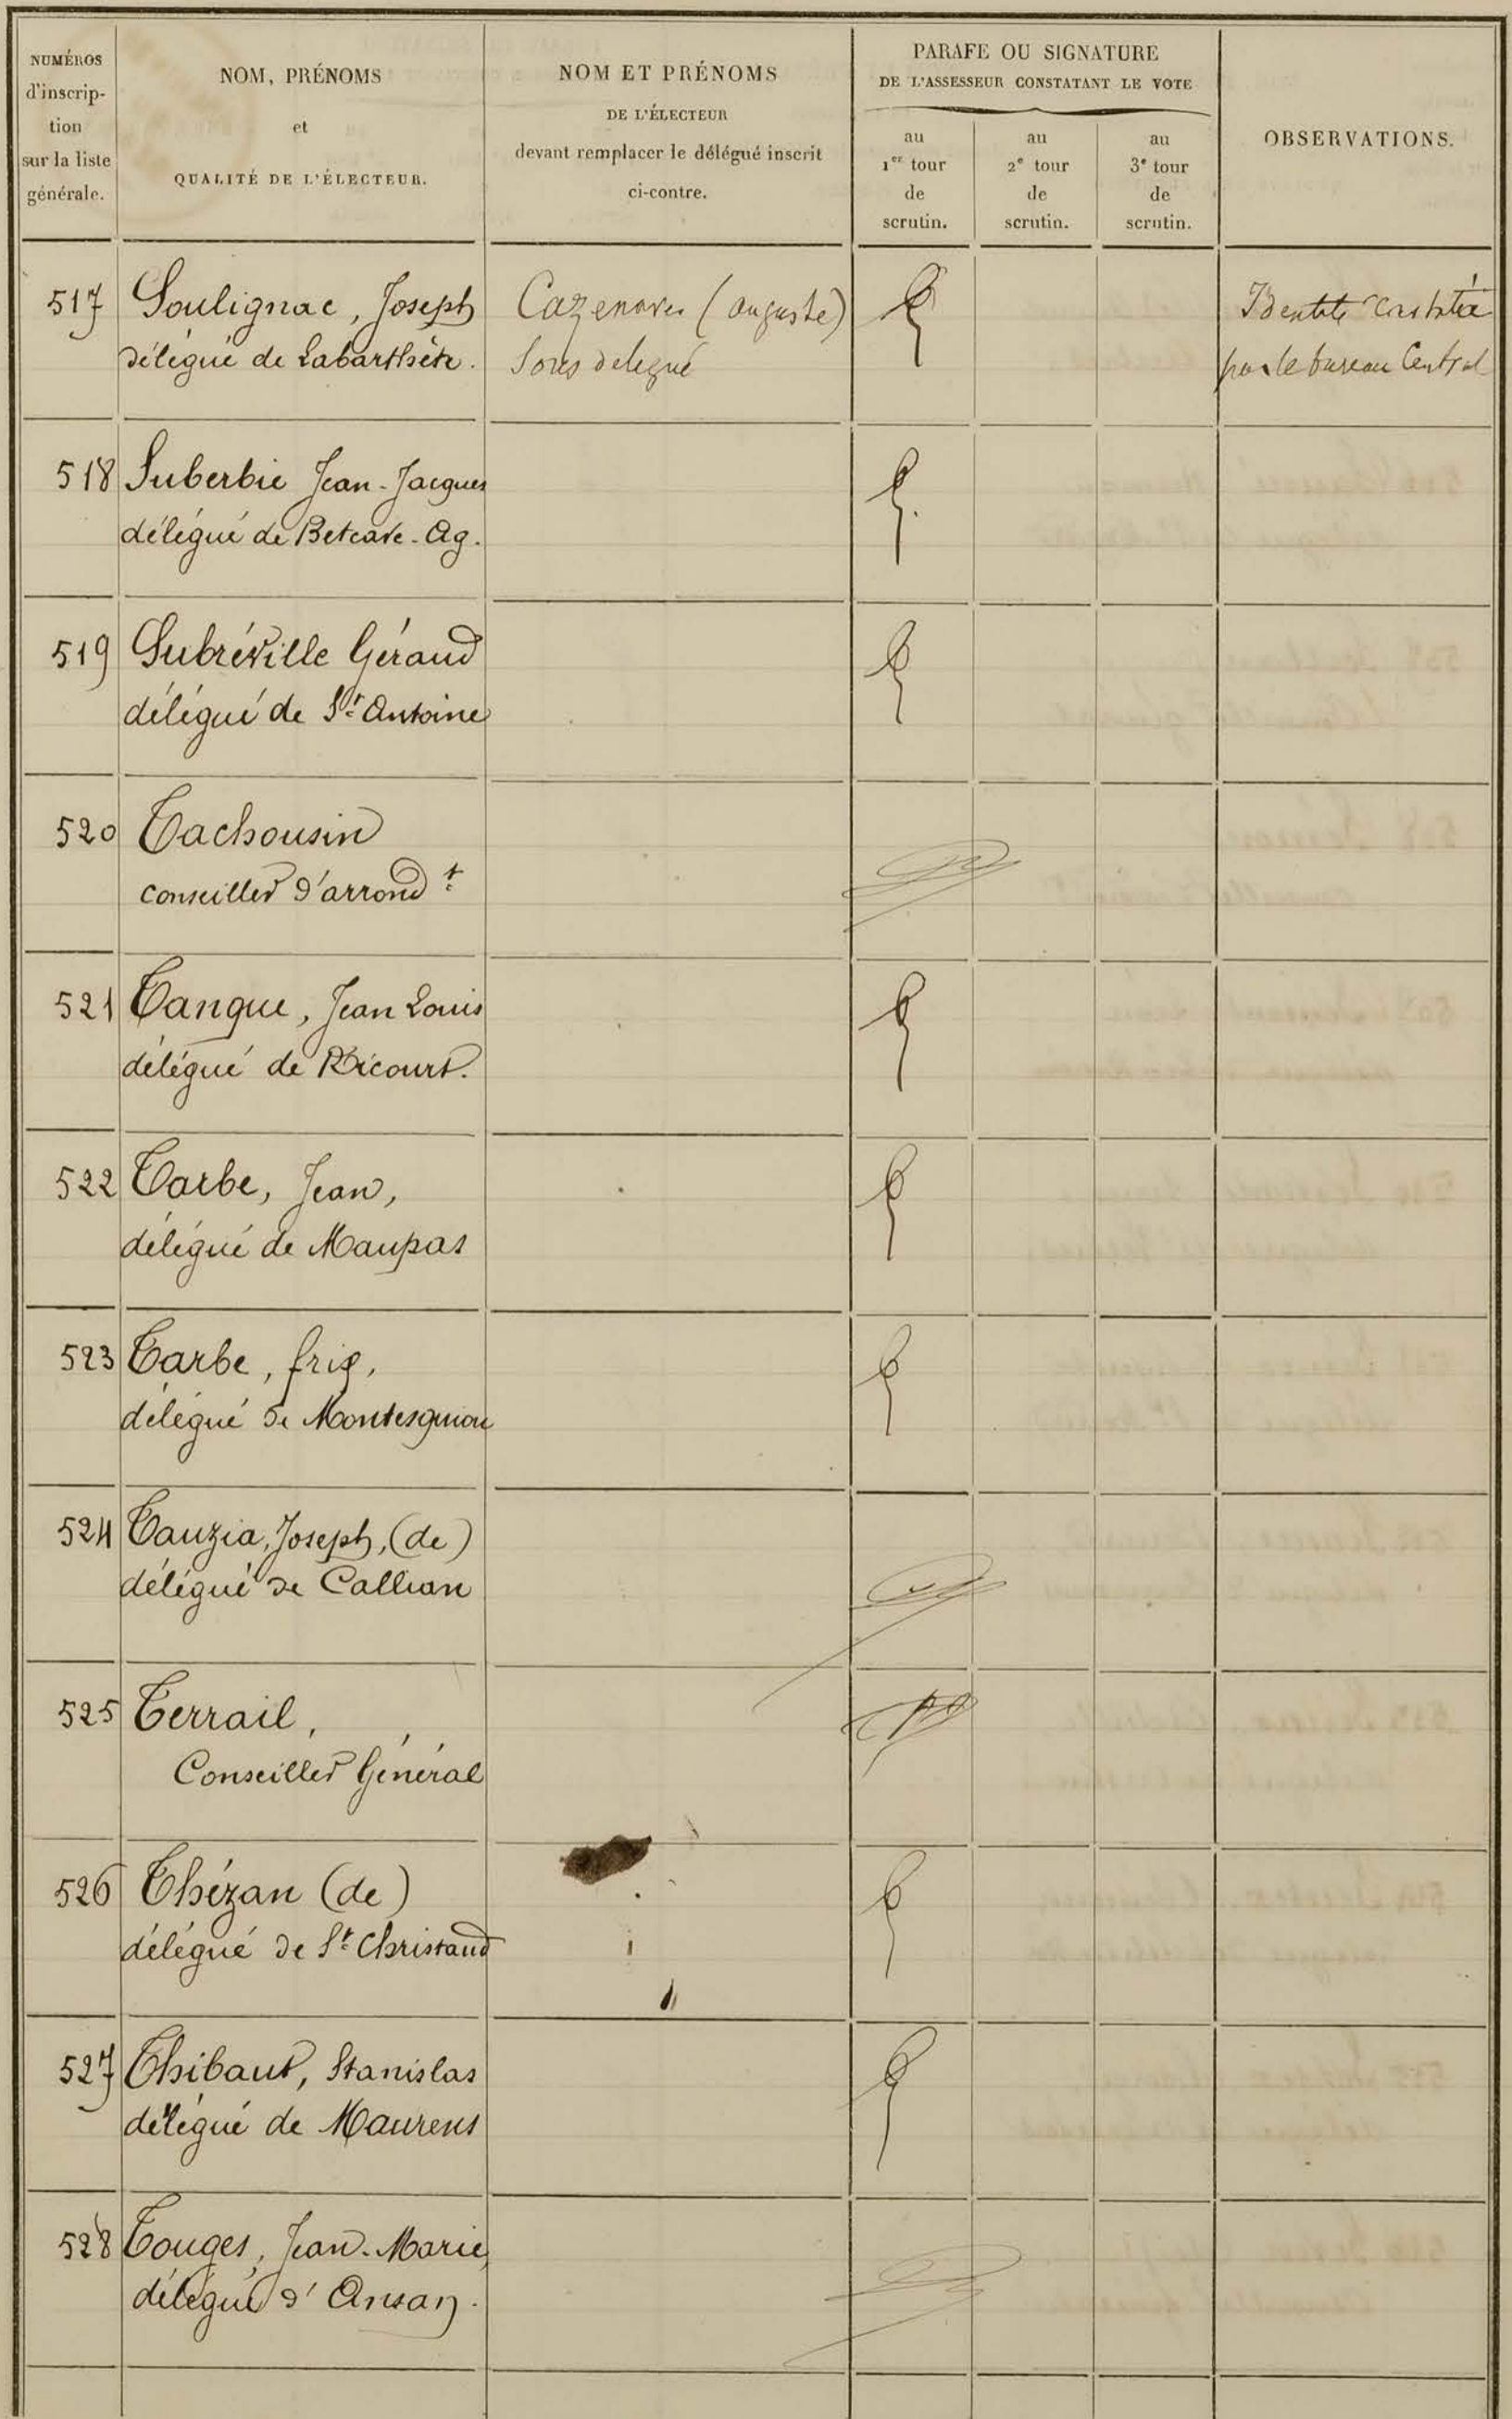 NUMÉROS
d'inscrip-
tion
sur la liste
générale.
NOM, PRÉNOMS
et
QUALITÉ DE L'ÉLECTEUR.
NOM ET PRÉNOMS
DE L'ÉLECTEUR
devant remplacer le délégué inscrit
ci-contre.
PARAFE OU SIGNATURE
DE L'ASSESSEUR CONSTATANT LE VOTE
au
1er tour
de
scrutin.
au
2e tour
de
scrutin.
au
3e tour
de
scrutin.
OBSERVATIONS.
517 Soulignac, Joseph
délégué de Labarthète.
Cazenaves (auguste)
Sous delegué
Identité constatée
par le bureau Central
518 Suberbie Jean-Jacques
délégué de Betcave-Ag.
519 Subréville Géraud
délégué de St Antoine
520 Tachousin
conseiller d'arrondt
521 Tanque, Jean Louis
délégué de Ricourt.
522 Tarbe, Jean,
délégué de Maupas
523 Tarbe, friş,
délégué de Montesquiou
524 Tauzia, Joseph, (de)
délégué de Callian
525 Terrail,
Conseiller Général
526 Thézan (de)
délégué de St Christaud
527 Thibaut, Stanislas
délégué de Maurens
528 Touges, Jean-Marie,
délégué d'Ansan.